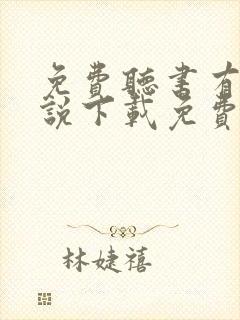 免費聽書有
說下載免費
林婕禧